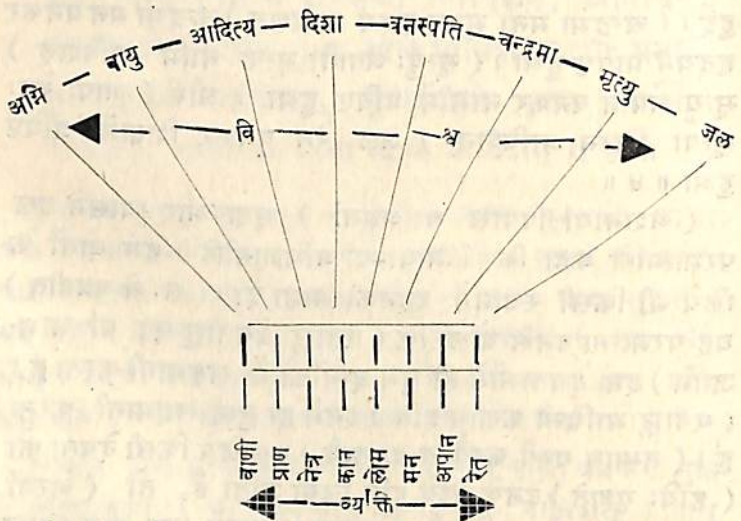 अग्नि — वायु — आदित्य — दिशा — वनस्पति — चन्द्रमा — मृत्यु — जल
वि — श्व
वाणी
प्राण
नेत्र
कान
लोम
मन
अपान
रेत
व्यक्ति